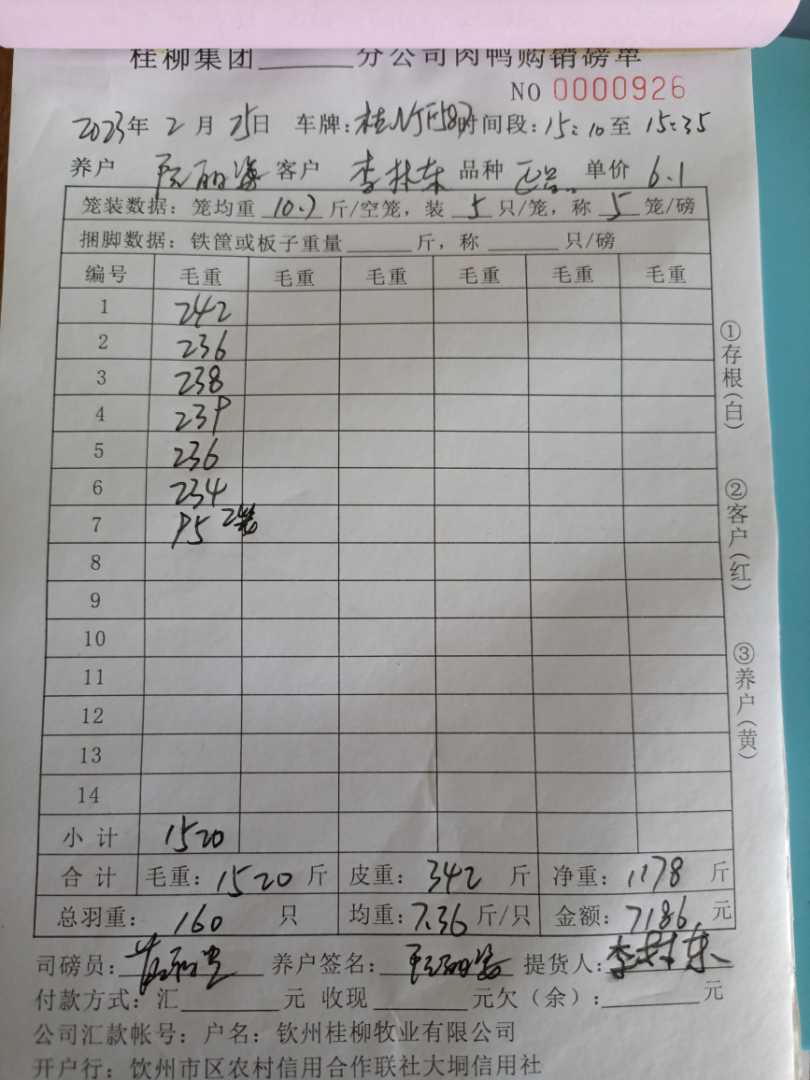 桂柳集团______分公司肉鸭购销磅单
NO 0000926
2023年 2月 25日 车牌: 时间段:15:10至 15:35
养户 客户 李林东 品种 单价 6.1
笼装数据: 笼均重 10.7 斤/空笼, 装 5 只/笼, 称 5 笼/磅
捆脚数据: 铁筐或板子重量______斤, 称______只/磅
编号 毛重 毛重 毛重 毛重 毛重 毛重
1 242
2 236
3 238
4 239
5 236
6 234
7 95 2笼
8
9
10
11
12
13
14
小 计 1520
合 计 毛重: 1520 斤 皮重: 342 斤 净重: 1178 斤
总羽重: 160 只 均重: 7.36 斤/只 金额: 7186 元
司磅员: 养户签名: 提货人: 李林东
付款方式: 汇______元 收现______元欠(余):______元
公司汇款帐号: 户名: 钦州桂柳牧业有限公司
开户行: 钦州市区农村信用合作联社大垌信用社
①存根(白)
②客户(红)
③养户(黄)